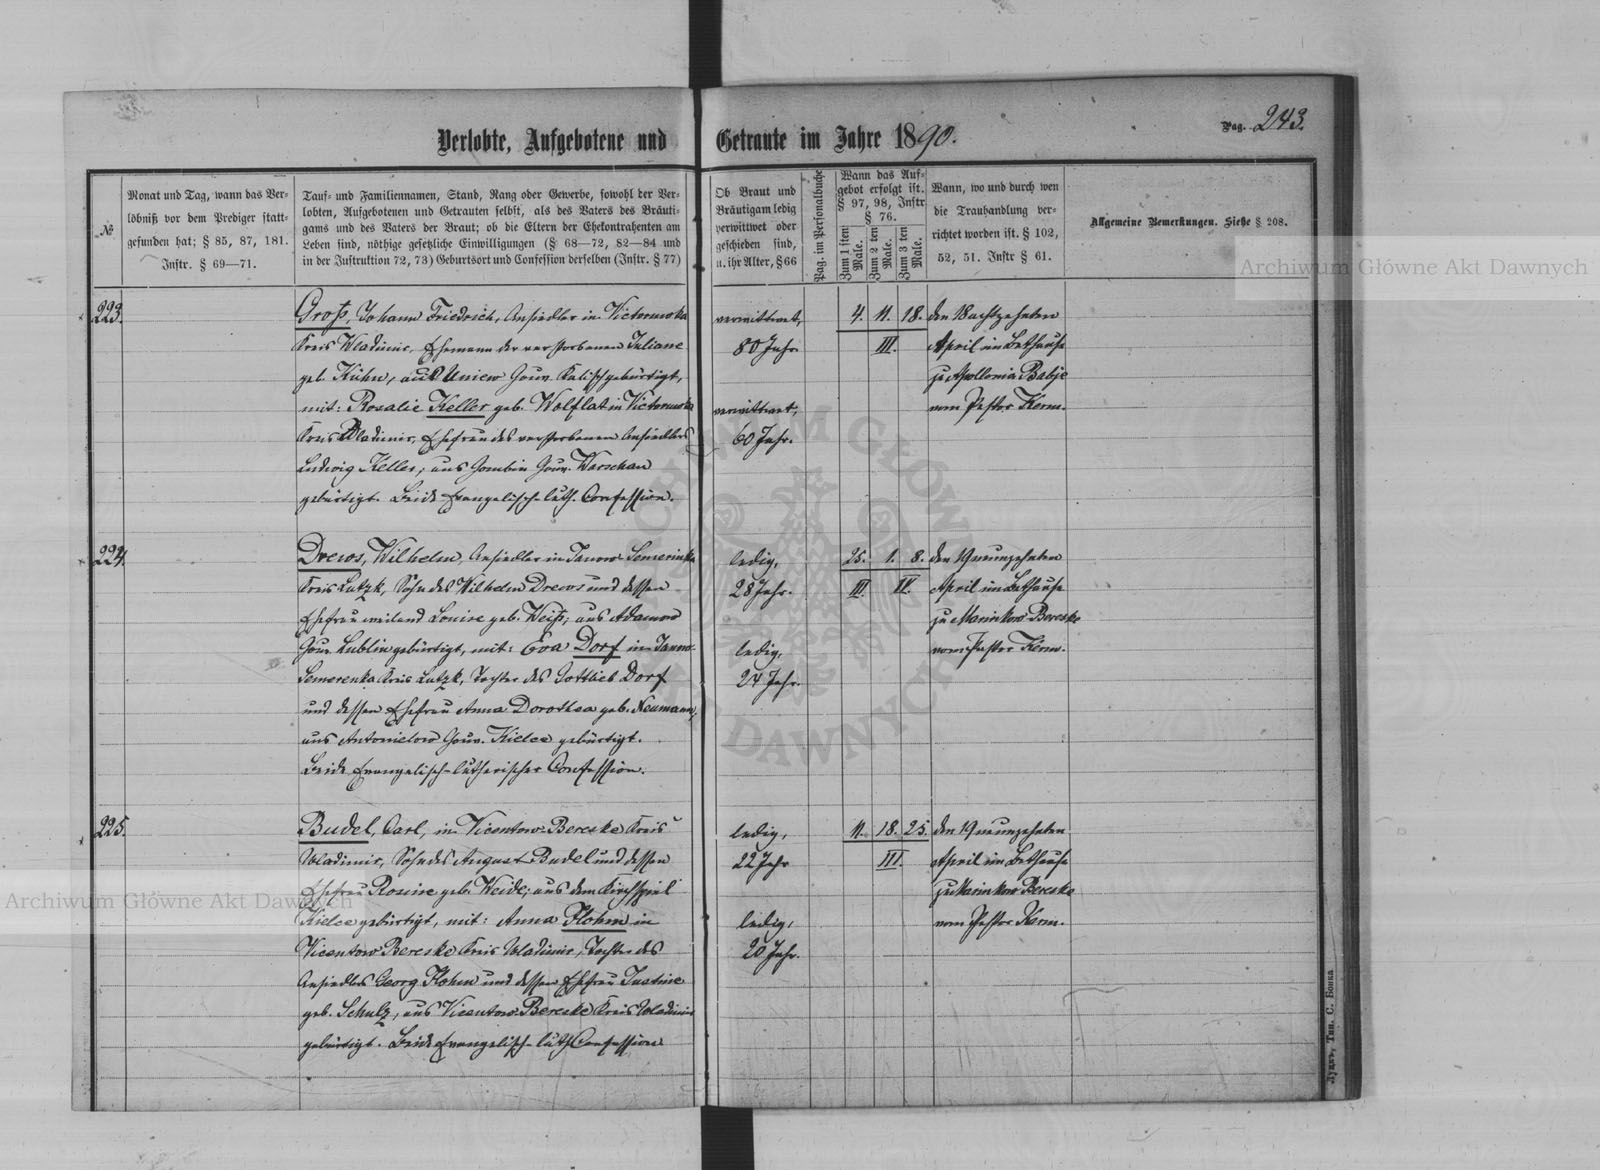 Verlobte, Aufgebotene und Getraute im Jahre 1890.
Pag. 243.
№
Monat und Tag, wann das Ver-
löbniß vor dem Prediger statt-
gefunden hat; § 85, 87, 181.
Instr. § 69—71.
Tauf- und Familiennamen, Stand, Rang oder Gewerbe, sowohl der Ver-
lobten, Aufgebotenen und Getrauten selbst, als des Vaters des Bräuti-
gams und des Vaters der Braut; ob die Eltern der Ehekontrahenten am
Leben sind, nöthige gesetzliche Einwilligungen (§ 68—72, 82—84 und
in der Instruktion 72, 73) Geburtsort und Confession derselben (Instr. § 77)
Ob Braut und
Bräutigam ledig
verwittwet oder
geschieden sind,
u. ihr Alter, § 66
Pag. im Personalbuche
Wann das Auf-
gebot erfolgt ist.
§ 97, 98, Instr
§ 76.
Zum 1 sten Male.
Zum 2 ten Male.
Zum 3 ten Male.
Wann, wo und durch wen
die Trauhandlung ver-
richtet worden ist. § 102,
52, 51. Instr § 61.
Allgemeine Bemerkungen. Siehe § 208.
223.
Groß, Johann Friedrich, Ansiedler in Victorowka
Kreis Wladimir, Ehemann der verstorbenen Juliane
geb. Kühn, aus Uniew Gouv. Kalisch gebürtigt,
mit: Rosalie Keller geb. Wolflat in Victorowka
Kreis Wladimir, Ehefrau des verstorbenen Ansiedlers
Ludwig Keller, aus Gombin Gouv. Warschau
gebürtigt. Beide Evangelisch-luth. Confession.
verwittwet,
80 Jahr.
verwittwet,
60 Jahr.
4. 11. 18.
III.
den 18 achtzehnten
April im Bethause
zu Apollonia Babje
vom Pastor Kerm.
224.
Drews, Wilhelm, Ansiedler in Janow-Semerinka
Kreis Lutzk, Sohn des Wilhelm Drews und dessen
Ehefrau weiland Louise geb. Weiß, aus Adamow
Gouv. Lublin gebürtigt, mit: Eva Dorf in Janow-
Semerenka Kreis Lutzk, Tochter des Gottlieb Dorf
und dessen Ehefrau Anna Dorothea geb. Neumann,
aus Antonielow Gouv. Kielce gebürtigt.
Beide Evangelisch-lutherischer Confession.
ledig,
28 Jahr.
ledig,
24 Jahr.
25. 1. 8.
III. IV.
den 19 neunzehnten
April im Bethause
zu Marinkow Bereske
vom Pastor Kerm.
225.
Budel, Carl, in Vicentow-Bereske Kreis
Wladimir, Sohn des August Budel und dessen
Ehefrau Rosine geb. Weide, aus dem Kirchspiel
Kielce gebürtigt, mit: Anna Flohm in
Vicentow Bereske Kreis Wladimir, Tochter des
Ansiedlers Georg Flohm und dessen Ehefrau Justine
geb. Schulz, aus Vicentow-Bereske Kreis Wladimir
gebürtigt. Beide Evangelisch-luth Confession
ledig,
22 Jahr
ledig,
20 Jahr.
11. 18. 25.
III.
den 19 neunzehnten
April im Bethause
zu Marinkow Bereske
vom Pastor Kerm.
Луцкъ, Тип. С. Бонка
Archiwum Główne Akt Dawnych
Archiwum Główne Akt Dawnych